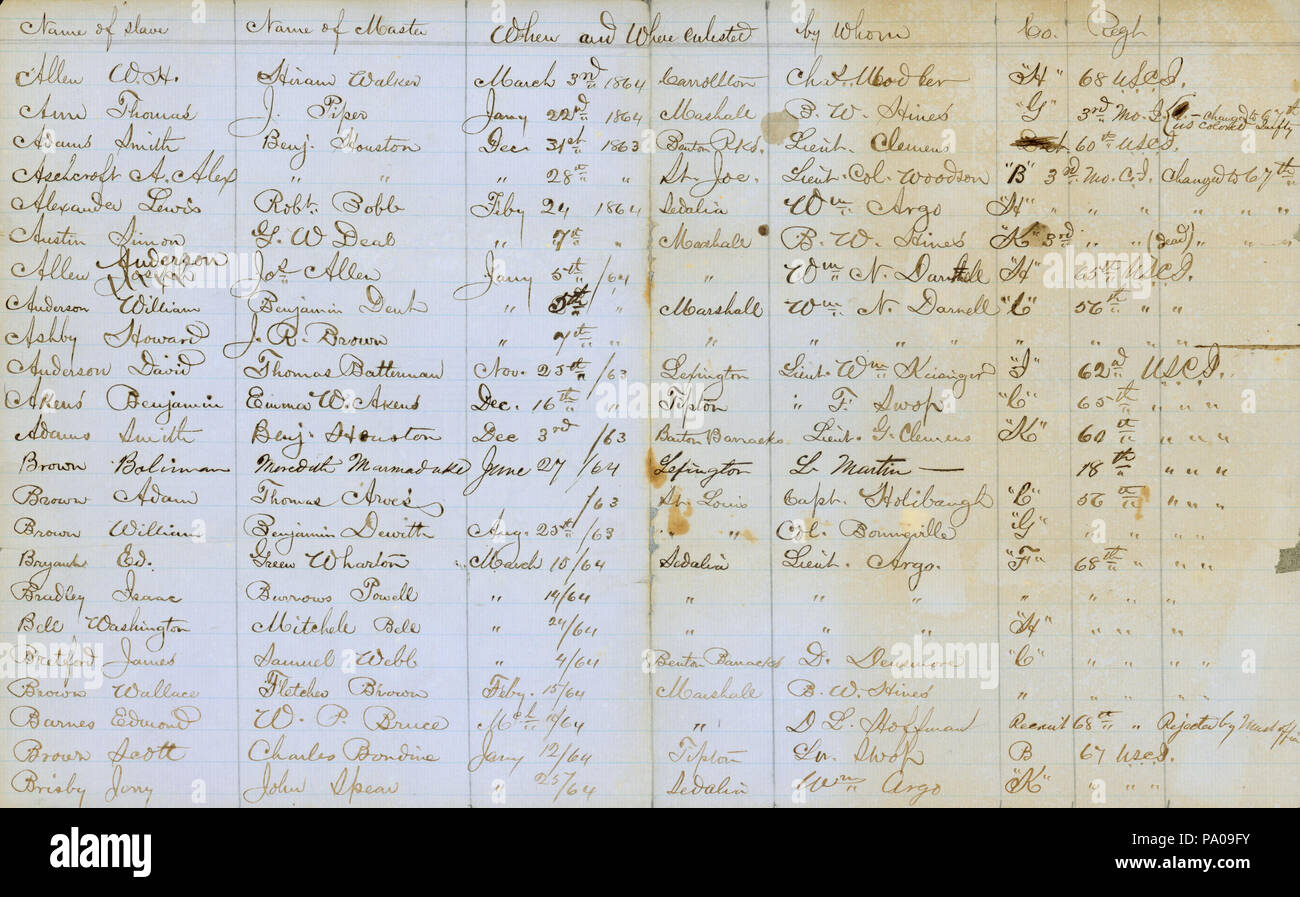 Name of slave Name of Master When and Where enlisted by Whom Co. Regt
Allen W. H. Hiram Walker March 3rd 1864 Carrollton "H" 68 U.S.C.I.
Thomas J. Piper Jany 22nd 1864 Mashall B. W. Hines "G" 3rd Mo. changed to 67th us colored Infty
Adams Smith Benj. Houston Dec 31st 1863 Benton Lieut. Clemens 60th U.S.C.I.
Ashcroft A. Alex " " " 28th " St. Joe. Lieut. Col. Woodson "B" 3rd Mo. C.I. Changed to 67th
Alexander Lewis Robt. Bobb Feby 24 1864 Sedalia Wm Argo "H" " " " " " "
Austin Simon G. W Deal " 7th " Marshall B. W. Hines "K" 3rd " " (dead) " " "
Anderson
Allen Joseph Jos Allen Jany 5th /64 " Wm N. Darnell "H" 65th U.S.C.I.
Anderson William Benjamin Dent " 5th " Marshall Wm N. Darnell "C" 56th " "
Ashby Howard J. R. Brown " 7th " " " " " " " " "
Anderson David Thomas Batterman Nov. 25th /63 Lexington Lieut. Wm Keisinger "I" 62d U.S.C.I.
Akens Benjamin Emma W. Akens Dec. 16th " Tipton " F. Swop "C" 65th " " "
Adams Smith Benj. Houston Dec 3rd /63 Benton Barracks Lieut. G. Clemens "K" 60th " " "
Brown Boliman Meredith Marmaduke June 27 /64 Lexington L. Martin — 18th " " "
Brown Adam Thomas /63 St. Louis Capt. Holibaugh "C" 56th " "
Brown William Benjamin Dewitth Aug. 25th /63 " " Col. Bonneville "G" " " "
Bryant Ed. Green Wharton March 10/64 Sedalia Lieut. Argo. "F" 68th " " "
Bradley Isaac Burrows Powell " 14/64 " " " " " " " "
Bell Washington Mitchell Bell " 24/64 " " " "H" " " "
James Samuel Webb " 4/64 Benton Barracks D. Densmore "C" " " "
Brown Wallace Fletcher Brown Feby. 15/64 Marshall B. W. Hines " " " "
Barnes Edmond W. P. Bruce Mch 10/64 " D L. Hoffman Recruit 68th " Rejected by Must offi
Brown Scott Charles Bondine Jany 12/64 Tipton Lw. Swop B 67 U.S.C.I.
Brisby Jerry John Spear " 25/64 Sedalia Wm Argo "K" " " "
alamy
www.alamy.com
Image ID: PA09FY